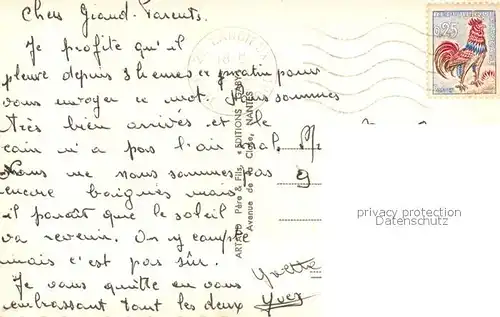 Chers Grand-Parents.
Je profite qu'il
pleure depuis 5 heures ce matin pour
vous envoyer ce mot. Nous sommes
très bien arrivés et le
coin n'a pas l'air mal.
Nous ne nous sommes pas
encore baignés mais
il paraît que le soleil
va revenir. On y compte
mais c'est pas sûr.
Je vous quitte en vous
embrassant tout les deux
Yvette
Yves
ARTAUD Père & Fils, « EDITIONS GABY »
Avenue de la Close, NANTES
0,25
privacy protection
Datenschutz